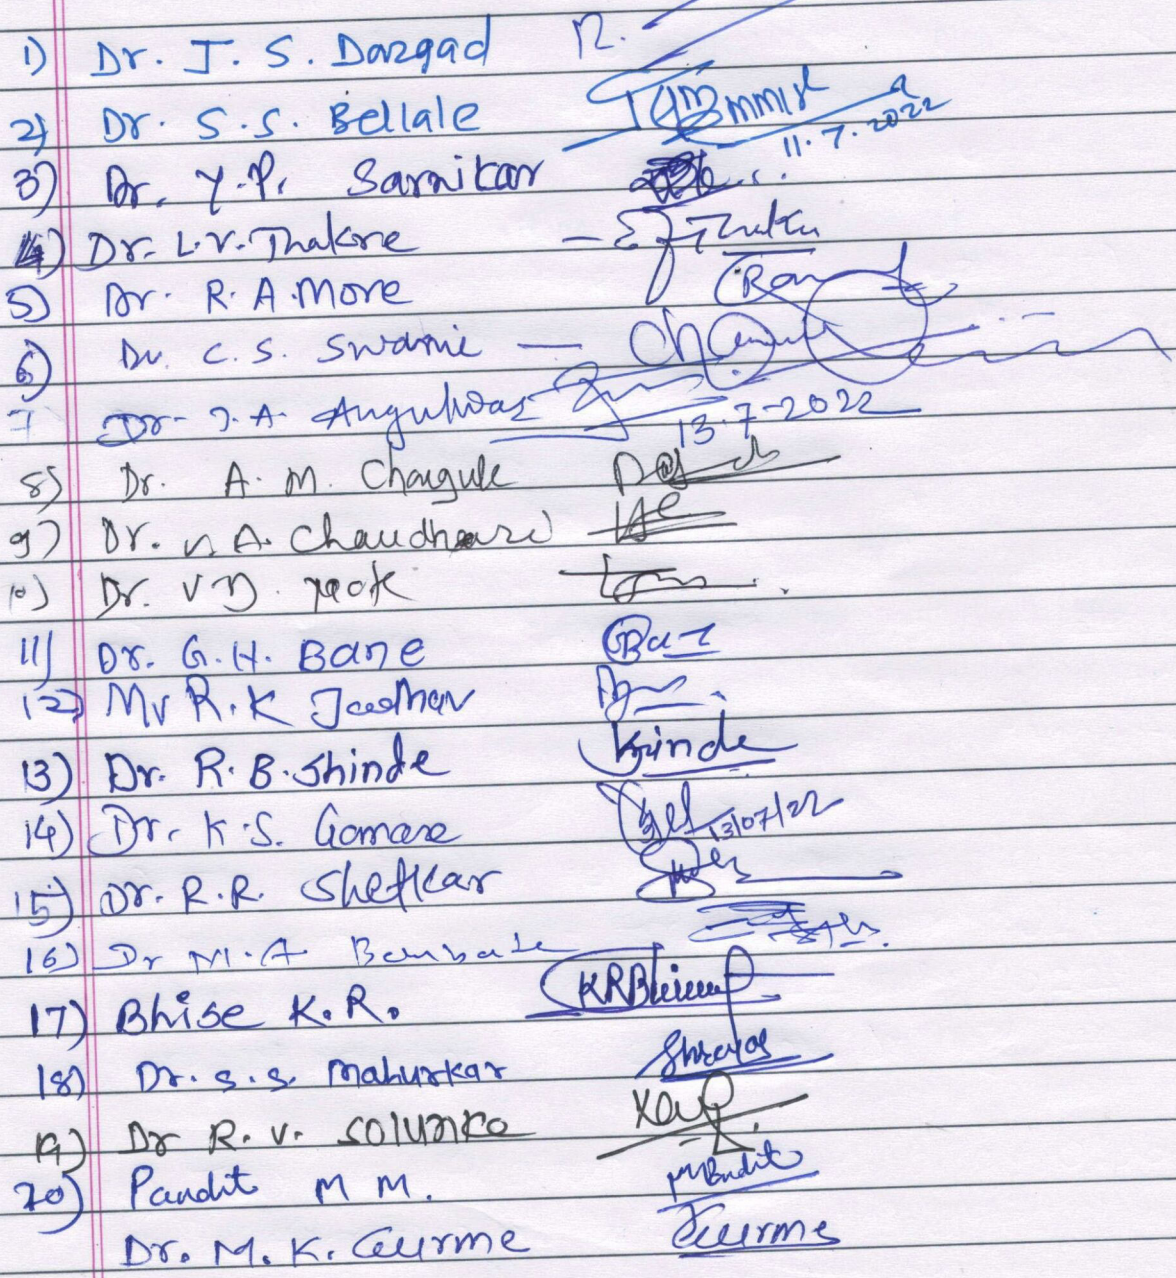 1) Dr. J. S. Dargad
2) Dr. S. S. Bellale
11.7.2022
3) Dr. Y. P. Sarnikar
4) Dr. L. V. Thakre
5) Dr. R. A. More
6) Dr. C. S. Swami —
7 Dr. J. A. Angulwar
13-7-2022
8) Dr. A. M. Chougule
9) Dr. N. A. Chaudhari
10) Dr. V D.
11) Dr. G. H. Bane
12) Mr R. K Jadhav
13) Dr. R. B. Shinde Shinde
14) Dr. K. S. Gomare 13/07/22
15) Dr. R. R. Shetkar
16) Dr M. A Bembade
17) Bhise K. R. KRBhise
18) Dr. S. S. Mahurkar
19) Dr R. V. Solunke
20) Pandit M M. MMPandit
Dr. M. K. Gurme Gurme